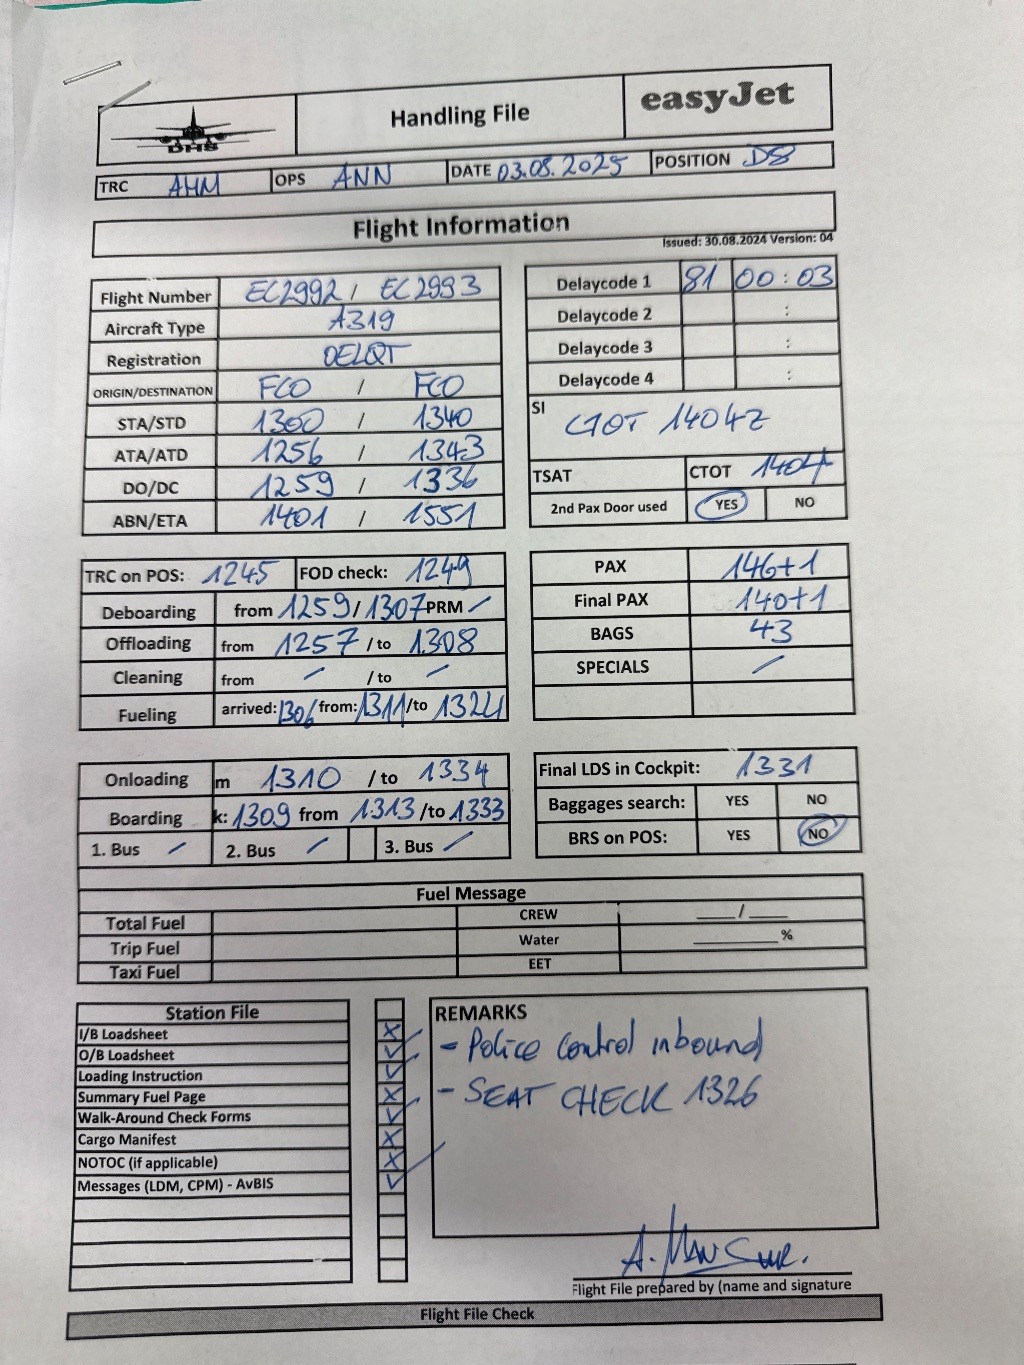 DHS
Handling File
easyJet
TRC AHM OPS ANN DATE 03.08.2025 POSITION D8
Flight Information
Issued: 30.08.2024 Version: 04
Flight Number EC2992 / EC2993
Aircraft Type A319
Registration OELQT
ORIGIN/DESTINATION FCO / FCO
STA/STD 1300 / 1340
ATA/ATD 1256 / 1343
DO/DC 1259 / 1336
ABN/ETA 1401 / 1551
Delaycode 1 81 00:03
Delaycode 2 :
Delaycode 3 :
Delaycode 4 :
SI CTOT 1404Z
TSAT CTOT 1404
2nd Pax Door used YES NO
TRC on POS: 1245 FOD check: 1249
Deboarding from 1259/1307 PRM /
Offloading from 1257 /to 1308
Cleaning from / /to /
Fueling arrived: 1306 from: 1311 /to 1324
PAX 146+1
Final PAX 140+1
BAGS 43
SPECIALS /
Onloading m 1310 /to 1334
Boarding k: 1309 from 1313 /to 1333
1. Bus / 2. Bus / 3. Bus /
Final LDS in Cockpit: 1331
Baggages search: YES NO
BRS on POS: YES NO
Fuel Message
Total Fuel CREW ___/___
Trip Fuel Water ______%
Taxi Fuel EET
Station File
I/B Loadsheet X
O/B Loadsheet ✓
Loading Instruction ✓
Summary Fuel Page X
Walk-Around Check Forms ✓
Cargo Manifest X
NOTOC (if applicable) X
Messages (LDM, CPM) - AvBIS ✓
REMARKS
- Police Control inbound
- SEAT CHECK 1326
Flight File prepared by (name and signature
Flight File Check